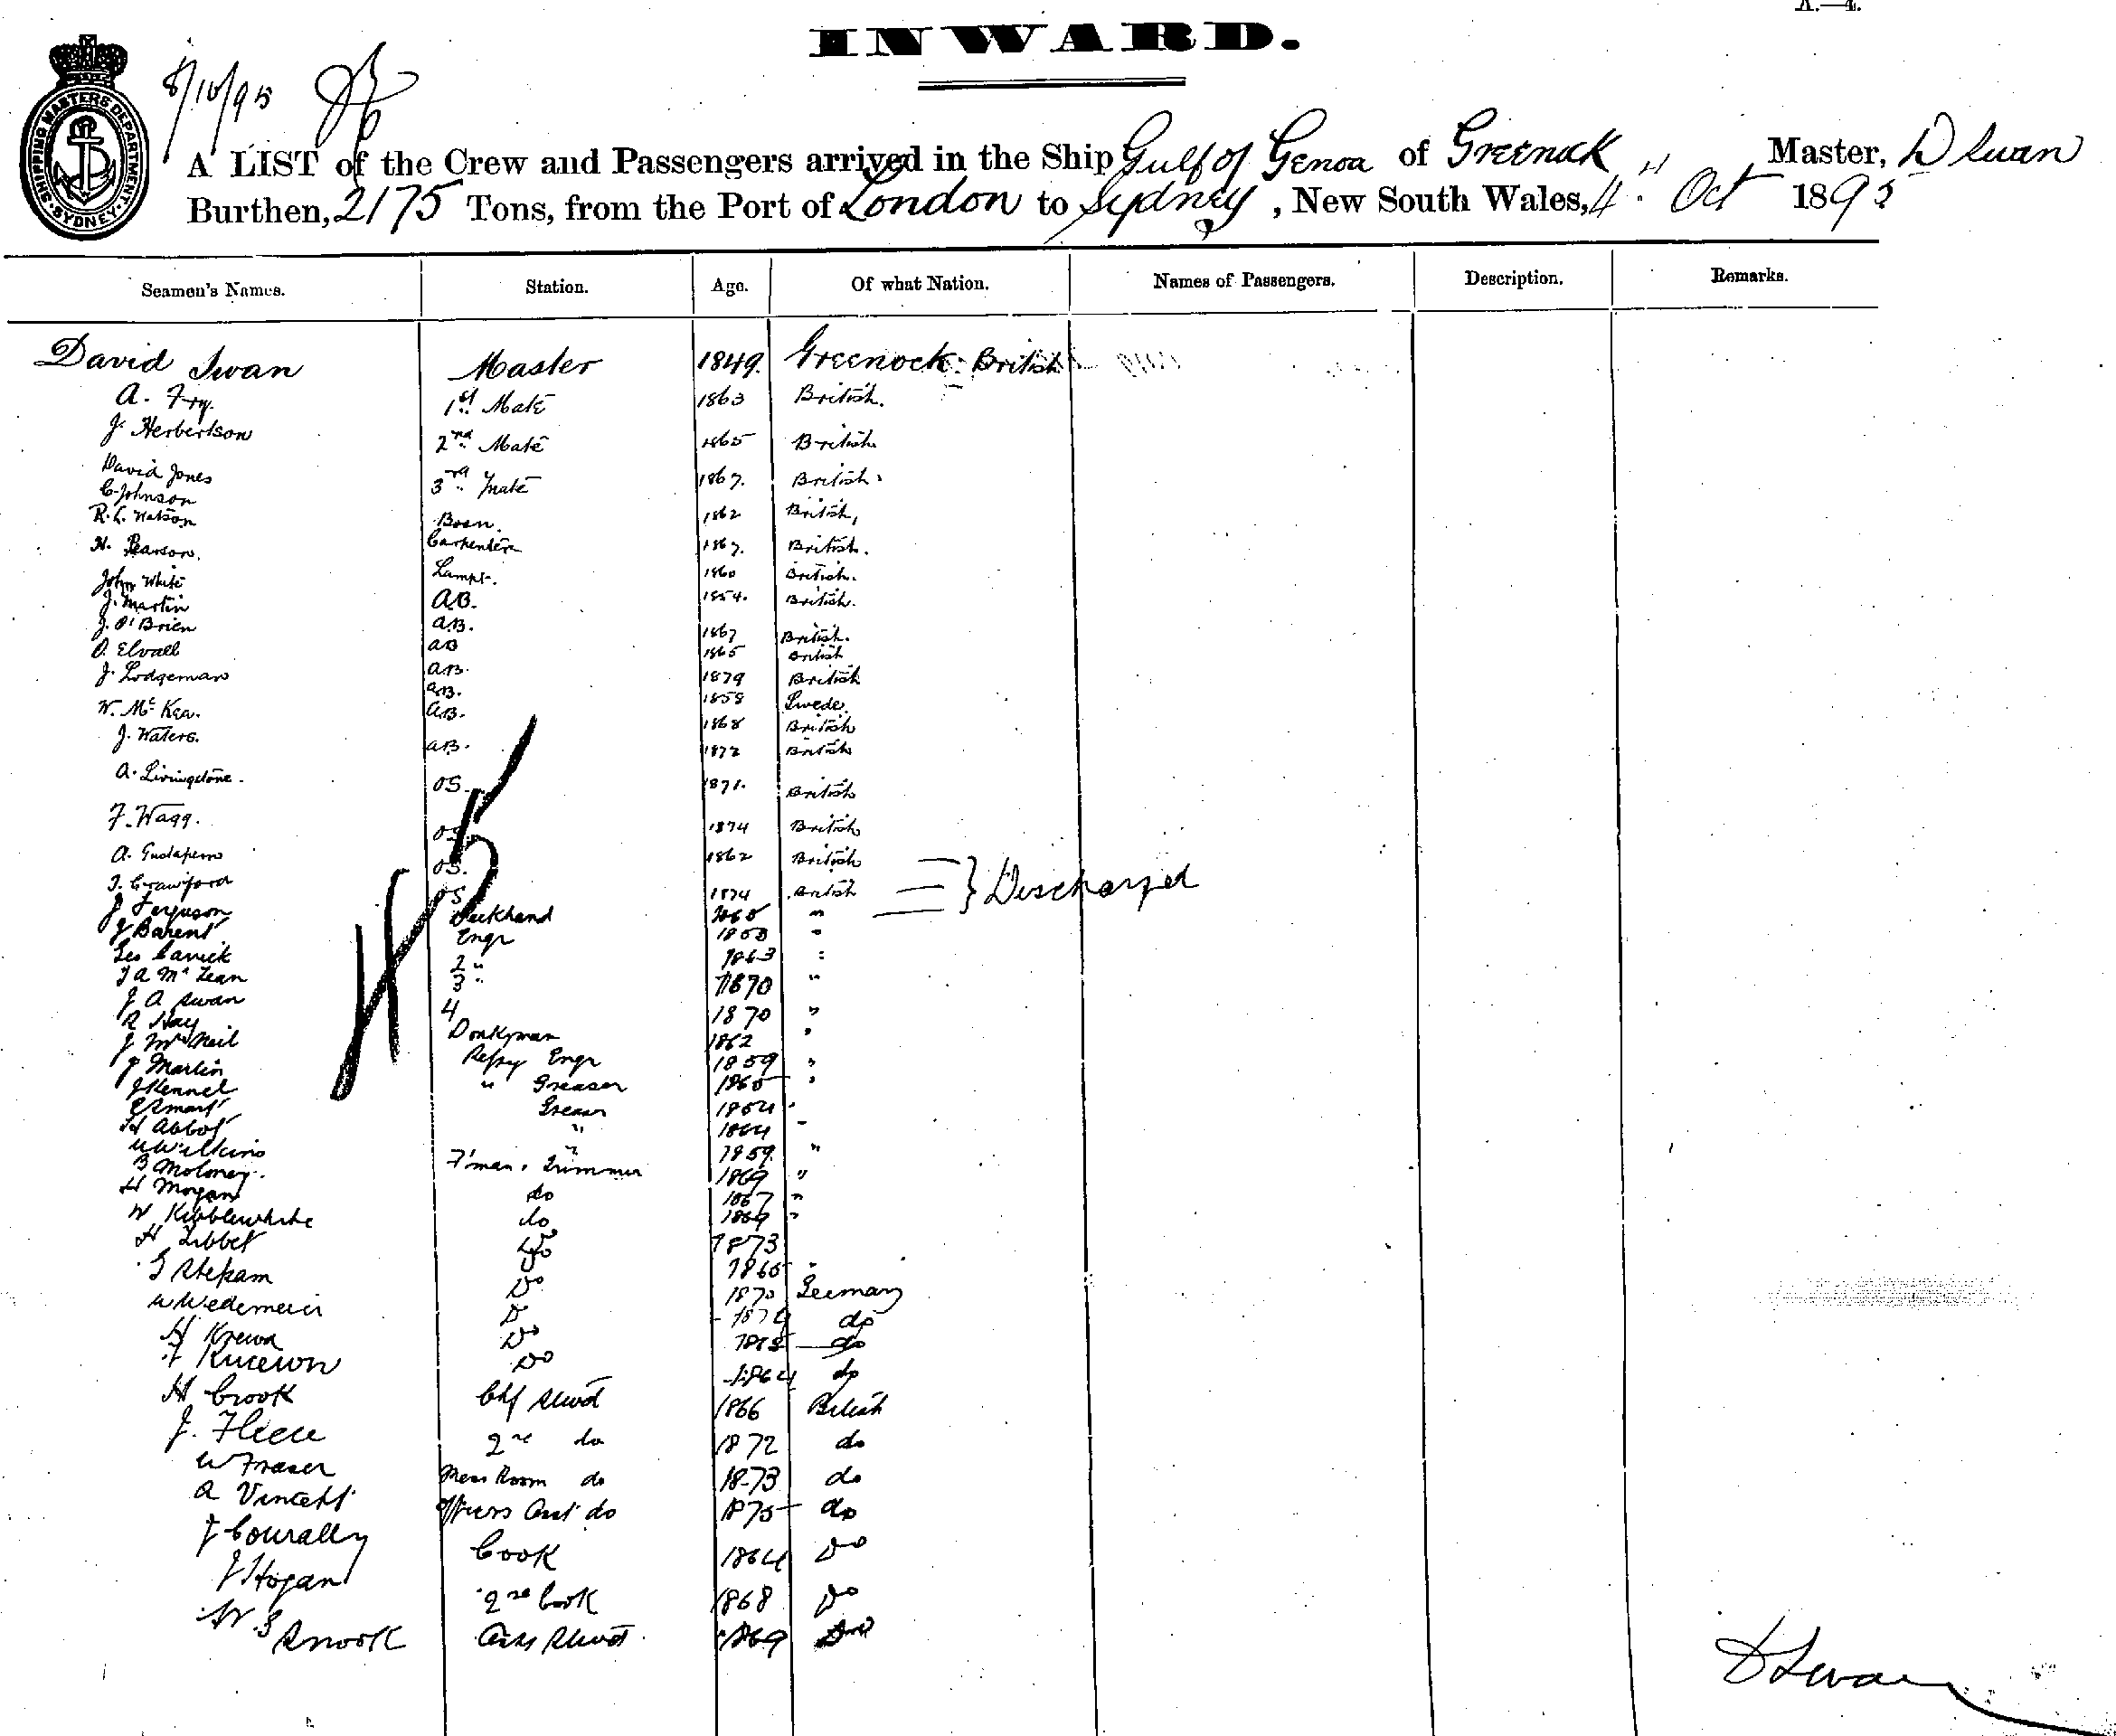 INWARD.
SHIPPING MASTERS DEPARTMENT
SYDNEY
8/10/95
A LIST of the Crew and Passengers arrived in the Ship Gulf of Genoa of Greenock Master, D Swan
Burthen, 2175 Tons, from the Port of London to Sydney, New South Wales, 4th Oct 1895
Seamen's Names. Station. Age. Of what Nation. Names of Passengers. Description. Remarks.
David Swan Master 1849. Greenock British
A. Fry. 1st Mate 1863 British.
J. Herbertson 2nd Mate 1865 British
David Jones 3rd Mate 1867. British.
C. Johnson Bosn. 1862 British,
R. L. Watson Carpenter 1867. British.
H. Pearson. Lampt. 1860 British.
John White A.B. 1854. British.
J. Martin A.B. 1867 British.
J. O'Brien AB 1865 British
O. Elvall A.B. 1879 British
J. Lodgeman A.B. 1858 Swede.
W. McKea. A.B. 1868 British
J. Waters. A.B. 1872 British
A. Livingstone. OS. 1871. British
F. Wagg. OS. 1874 British
A. OS. 1862 British
T. Crawford OS 1874 British } Discharged
J Ferguson Deckhand 1865 "
J Barent Engr 1853 "
Geo Carrick 2 " 1863 "
J A McLean 3 " 1870 "
J A Swan 4 1870 "
R Hay Donkyman 1862 "
J McNeil Refrg Engr 1859 "
P Martin " Greaser 1865 "
J Kennel Greaser 1864 "
E Smart " 1864 "
H Abbot " 1859 "
W Wilkins F'man & Trimmer 1869 "
B Moloney do 1867 "
H Morgan do 1869 "
W Kibblewhite do 1873
H Tibbet Do 1865 "
Do 1870 Germany
W Wedemeier Do do
H Krewa Do do
F Do 1864 do
H Crook Chf Stwd 1866 British
J. Fleece 2nd do 1872 do
W Fraser Mess Room do 1873 do
A Vincent Officers Asst do 1875 do
J Courally Cook 1864 Do
J Hogan 2nd Cook 1868 Do
W. G Snook Asst Stwd 1869 Do
D Swan